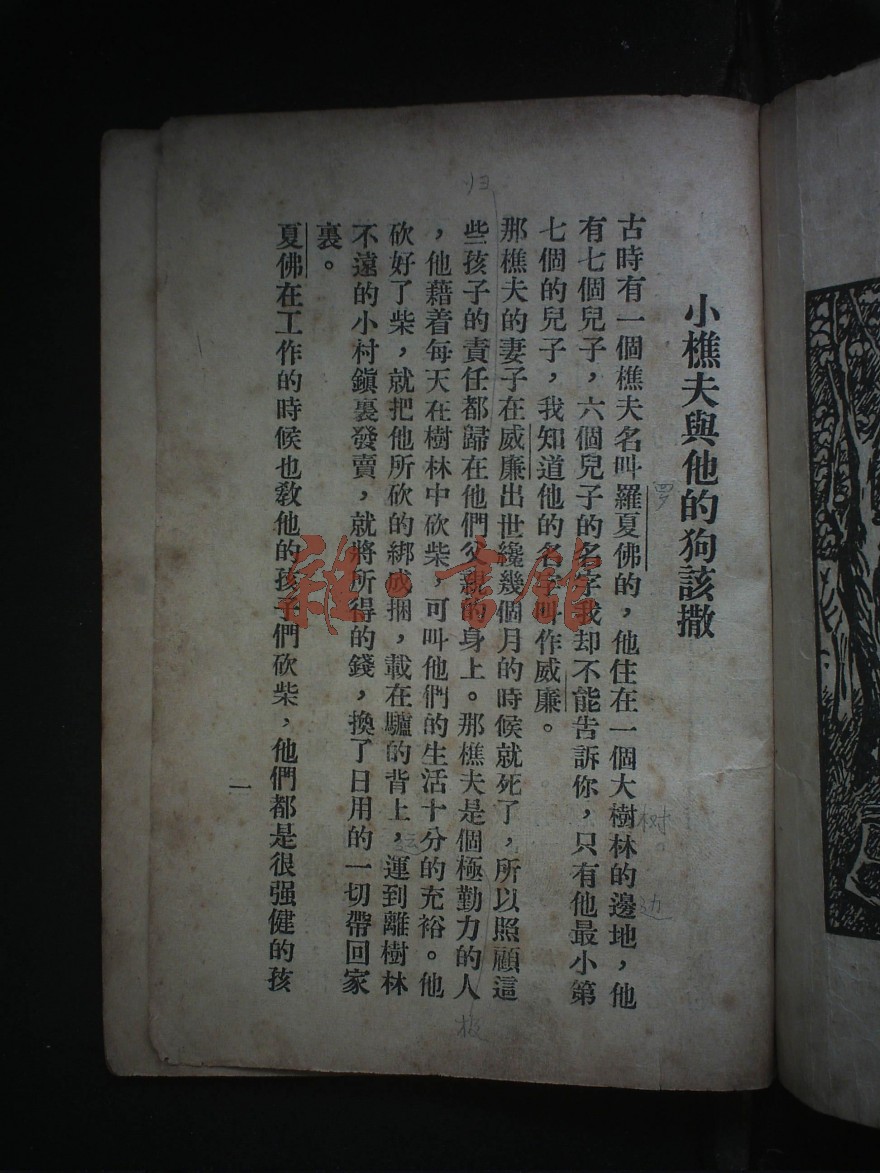 小樵夫與他的狗該撒
古時有一個樵夫名叫羅夏佛的，他住在一個大樹林的邊地，他
有七個兒子，六個兒子的名字我却不能告訴你，只有他最小第
七個的兒子，我知道他的名字叫作威廉。
那樵夫的妻子在威廉出世纔幾個月的時候就死了，所以照顧這
些孩子的責任都歸在他們父親的身上。那樵夫是個極勤力的人
，他藉着每天在樹林中砍柴，可叫他們的生活十分的充裕。他
砍好了柴，就把他所砍的綁成捆，載在驢的背上，運到離樹林
不遠的小村鎭裏發賣，就將所得的錢，換了日用的一切帶回家
裏。
夏佛在工作的時候也敎他的孩子們砍柴，他們都是很强健的孩
一
归
罗
树
边
雜·書館